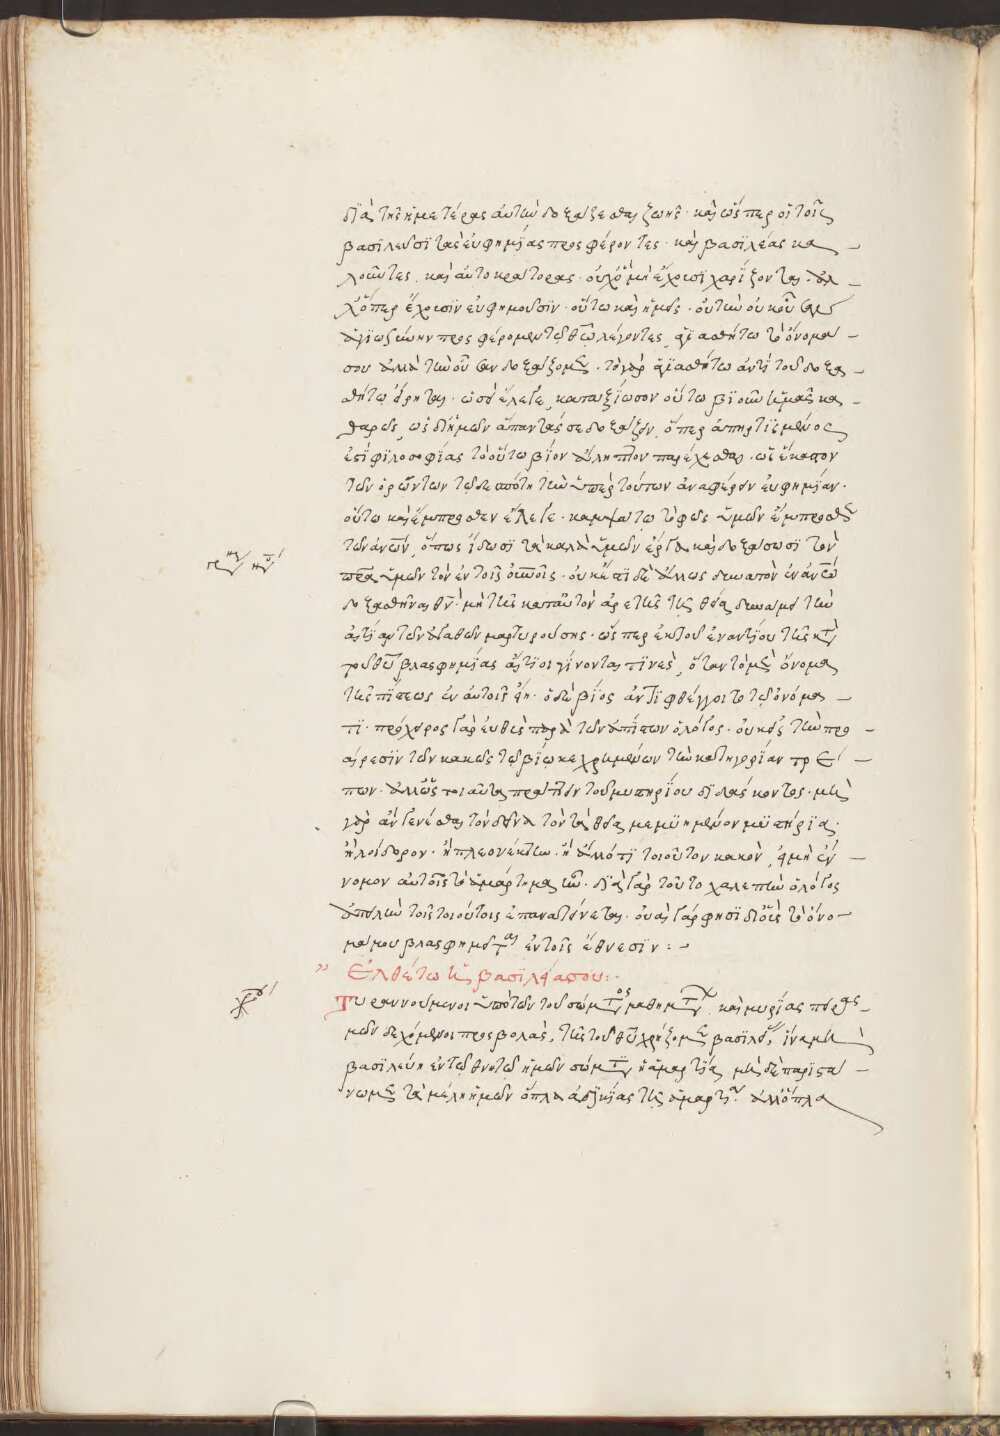 διὰ τῆς ἡμετέρας αὐτὸν δοξάζεσθαι ζωῆς· καὶ ὥσπερ οἱ τοῖς
βασιλεῦσι τὰς εὐφημίας προσφέροντες· καὶ βασιλέας κα
λοῦντες, καὶ αὐτοκράτορας· οὐχ ὃ μὴ ἔχουσι χαρίζονται· ἀλ
λ' ὅπερ ἔχουσιν εὐφημοῦσιν· οὕτω καὶ ἡμεῖς· οὕτω οὐκ οὖσαν
ἁγιωσύνην προσφέρομεν τῷ θω λέγοντες, ἁγιασθήτω τὸ ὄνομα
σου ἀλλὰ τὴν οὖσαν δοξάζομεν· τὸ γὰρ ἁγιασθήτω ἀντὶ τοῦ δοξα
σθήτω εἴρηται· ὡσεὶ ἔλεγε, καταξίωσον οὕτω βιοῦν ἡμᾶς κα
θαρῶς, ὡς δι' ἡμῶν ἅπαντάς σε δοξάζειν, ὅπερ ἀπηρτισμένος
ἐστὶ φιλοσοφίας τὸ οὕτω βίον ἄληπτον παρέχεσθαι· ὡς ἕκαστον
τῶν ὁρώντων τῷ δεσπότῃ τὴν ὑπὲρ τούτων ἀναφέρειν εὐφημίαν·
οὕτω καὶ ἔμπροσθεν ἔλεγε· λαμψάτω τὸ φῶς ὑμῶν ἔμπροσθεν
τῶν ἀνων, ὅπως ἴδωσι τὰ καλὰ ὑμῶν ἔργα καὶ δοξάσωσι τὸν
πρα ὑμῶν τὸν ἐν τοῖς οὐνοῖς· οὐκ ἔστι δὲ ἄλλως δυνατὸν ἐν ἀνω
δοξασθῆναι θν· μὴ τῆς κατ' αὐτὸν ἀρετῆς τῆς θείας δυνάμει τὴν
αἰτίαν τῶν ἀγαθῶν μαρτυρούσης· ὥσπερ ἐκ τοῦ ἐναντίου τῆς κα
τοῦ θυ βλασφημίας αἴτιοι γίνονται τινὲς, ὅταν τὸ μὲν ὄνομα
τῆς πίστεως ἐν αὐτοῖς ᾖ· ὁ δὲ βίος ἀντιφθέγγοιτο τῷ ὀνόμα
τι· πρόχειρος γὰρ εὐθὺς παρὰ τῶν ἀπίστων ὁ λόγος· οὐκ εἰς τὴν προ
αίρεσιν τῶν κακῶς τῷ βίῳ κεχρημένων τὴν κατηγορίαν τρε
πων· ἀλλ' ὡς τοιαῦτα πράττειν τοῦ μυστηρίου διδάσκοντος· μὴ
γὰρ ἂν γενέσθαι τὸν δεῖνα τὸν τὰ θεῖα μεμυημένον μυστήρια
ἢ λοίδορον· ἢ πλεονέκτην· ἢ ἄλλό τι τοιοῦτον κακὸν, εἰ μὴ ἔν
νομον αὐτοῖς τὸ ἁμάρτημα ἦν· διὰ γὰρ τοῦτο χαλεπὴν ὁ λόγος
ἀπειλὴν τοῖς τοιούτοις ἐπανατείνεται· οὐαὶ γάρ φησι δι' οὓς τὸ ὄνο
μά μου βλασφημεῖται ἐν τοῖς ἔθνεσιν:
Ἐλθέτω ἡ βασιλεία σου:
Τυραννούμενοι ὑπὸ τῶν τοῦ σώματος παθημάτων, καὶ μυρίας πειρας
μῶν δεχόμενοι προσβολὰς, τῆς τοῦ θυ χρήζομεν βασιλείας, ἵνα μὴ
βασιλεύῃ ἐν τῷ θνητῷ ἡμῶν σώματι ἡ ἁμαρτία, μὴ δὲ παριστά
νωμεν τὰ μέλη ἡμῶν ὅπλα ἀδικίας τῆς ἁμαρτίας· ἀλλ' ὅπλα